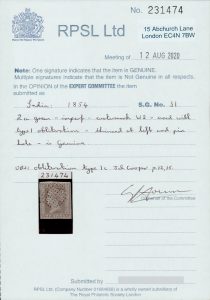 No. 231474
RPSL Ltd
15 Abchurch Lane
London EC4N 7BW
Meeting of 12 AUG 2020
Note: One signature indicates that the item is GENUINE.
Multiple signatures indicate that the item is Not Genuine in all respects.
In the OPINION of the EXPERT COMMITTEE the item
submitted as
India: 1854 S.G. No. 31
2a green - imperf - watermark W2 - used with
type 1 obliteration - thinned at left and pin
hole - is genuine.
obliteration type 1c
231474
Submitted by
RPSL Ltd (Company Number 01984658) is a wholly owned subsidiary of
The Royal Philatelic Society London